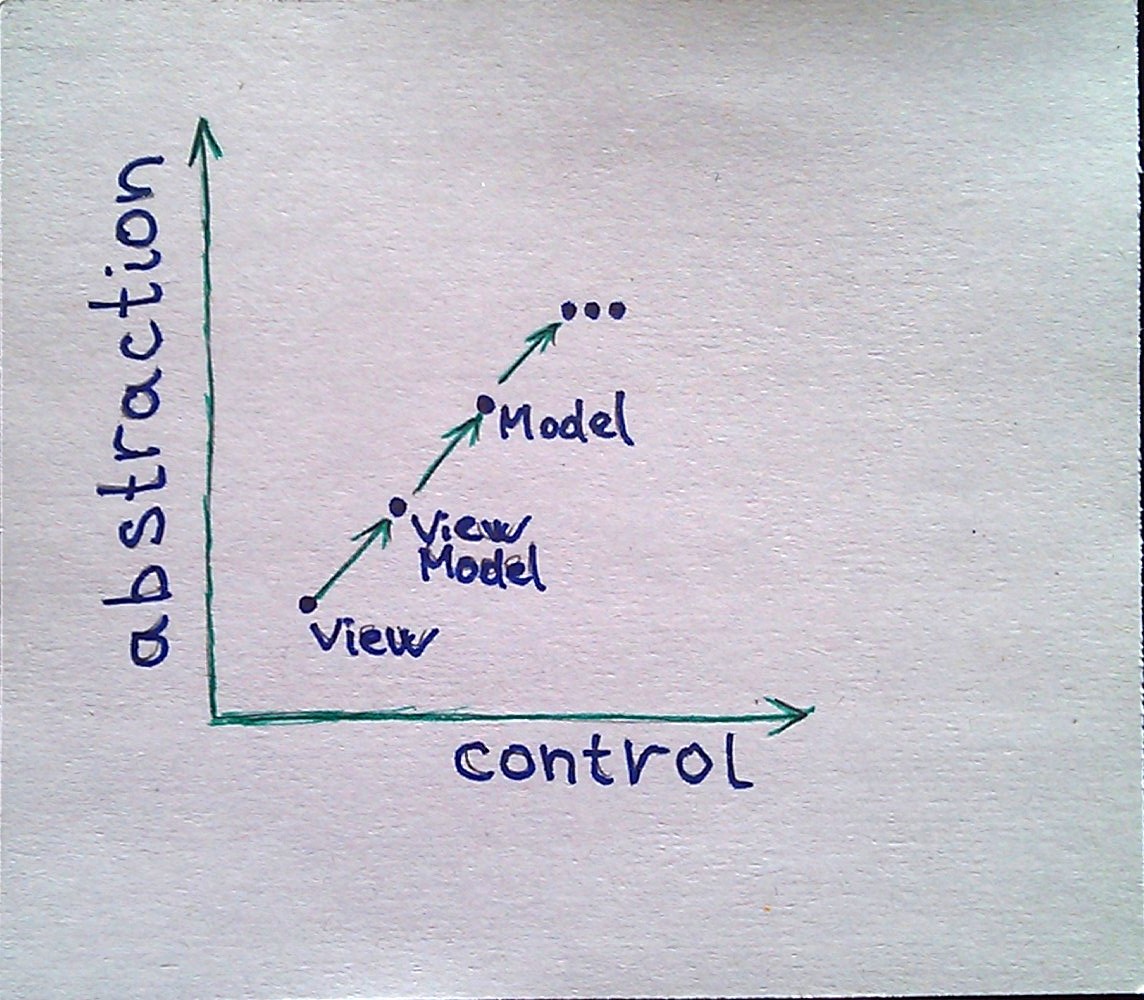 abstraction
•••
Model
View
Model
View
control